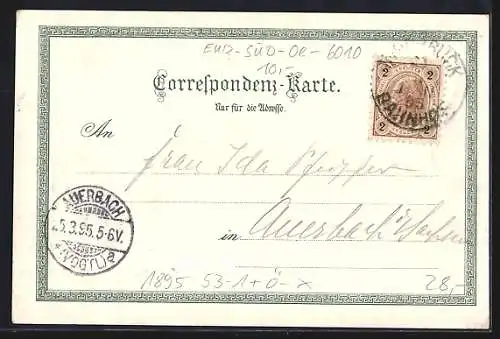 EHZ-SÜD-OE-6010
10,-
Correspondenz-Karte.
Nur für die Adresse.
2 2
2 2
BAHNHOF
95
An
Frau Ida
in Auerbach i/Sachsen
AUERBACH
5.3.95.5-6V.
(VOGTL.) a
1895 53-1+Ö-X
28,-